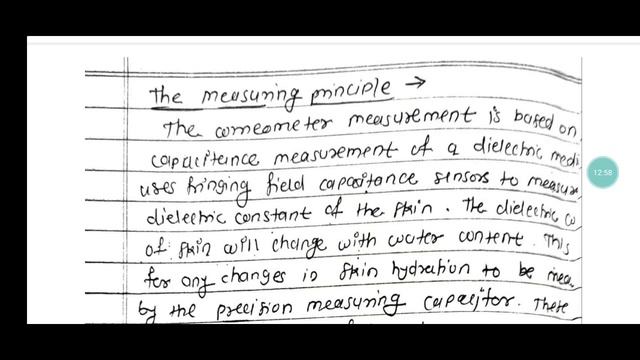 The measuring principle →
The corneometer measurement is based on
capacitence measurement of a dielectric medi
uses fringing field capacitance sensors to measure
dielectric constant of the skin. The dielectric co
of skin will change with water content. This
for any changes in skin hydration to be mea
by the precision measuring capacitor. These
12:58